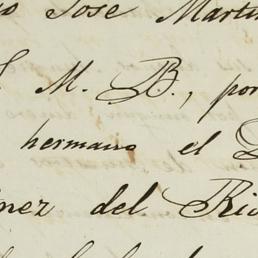 José Martin
M. B., por
hermano el
nez del Rio